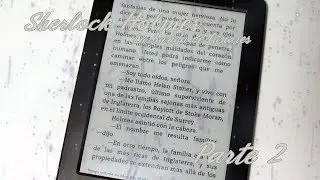 fantasías de una mujer nerviosa. No lo
Sherlock
Holmes
en las múltiples maldades del corazón
humano. Usted podrá indicarme cómo
caminar entre los peligros que me
amenazan.
—Soy todo oídos, señora.
—Me llamo Helen Stoner, y vivo con
mi padrastro, último superviviente de
una de las familias sajonas más antiguas
de Inglaterra, los Roylott de Stoke Moran,
en el límite occidental de Surrey.
Holmes asintió con la cabeza.
—El nombre me resulta familiar
—dijo.
Parte 2
—En otro tiempo, la familia era una
de las más ricas de Inglaterra, y sus
propiedades se extendían más allá de los